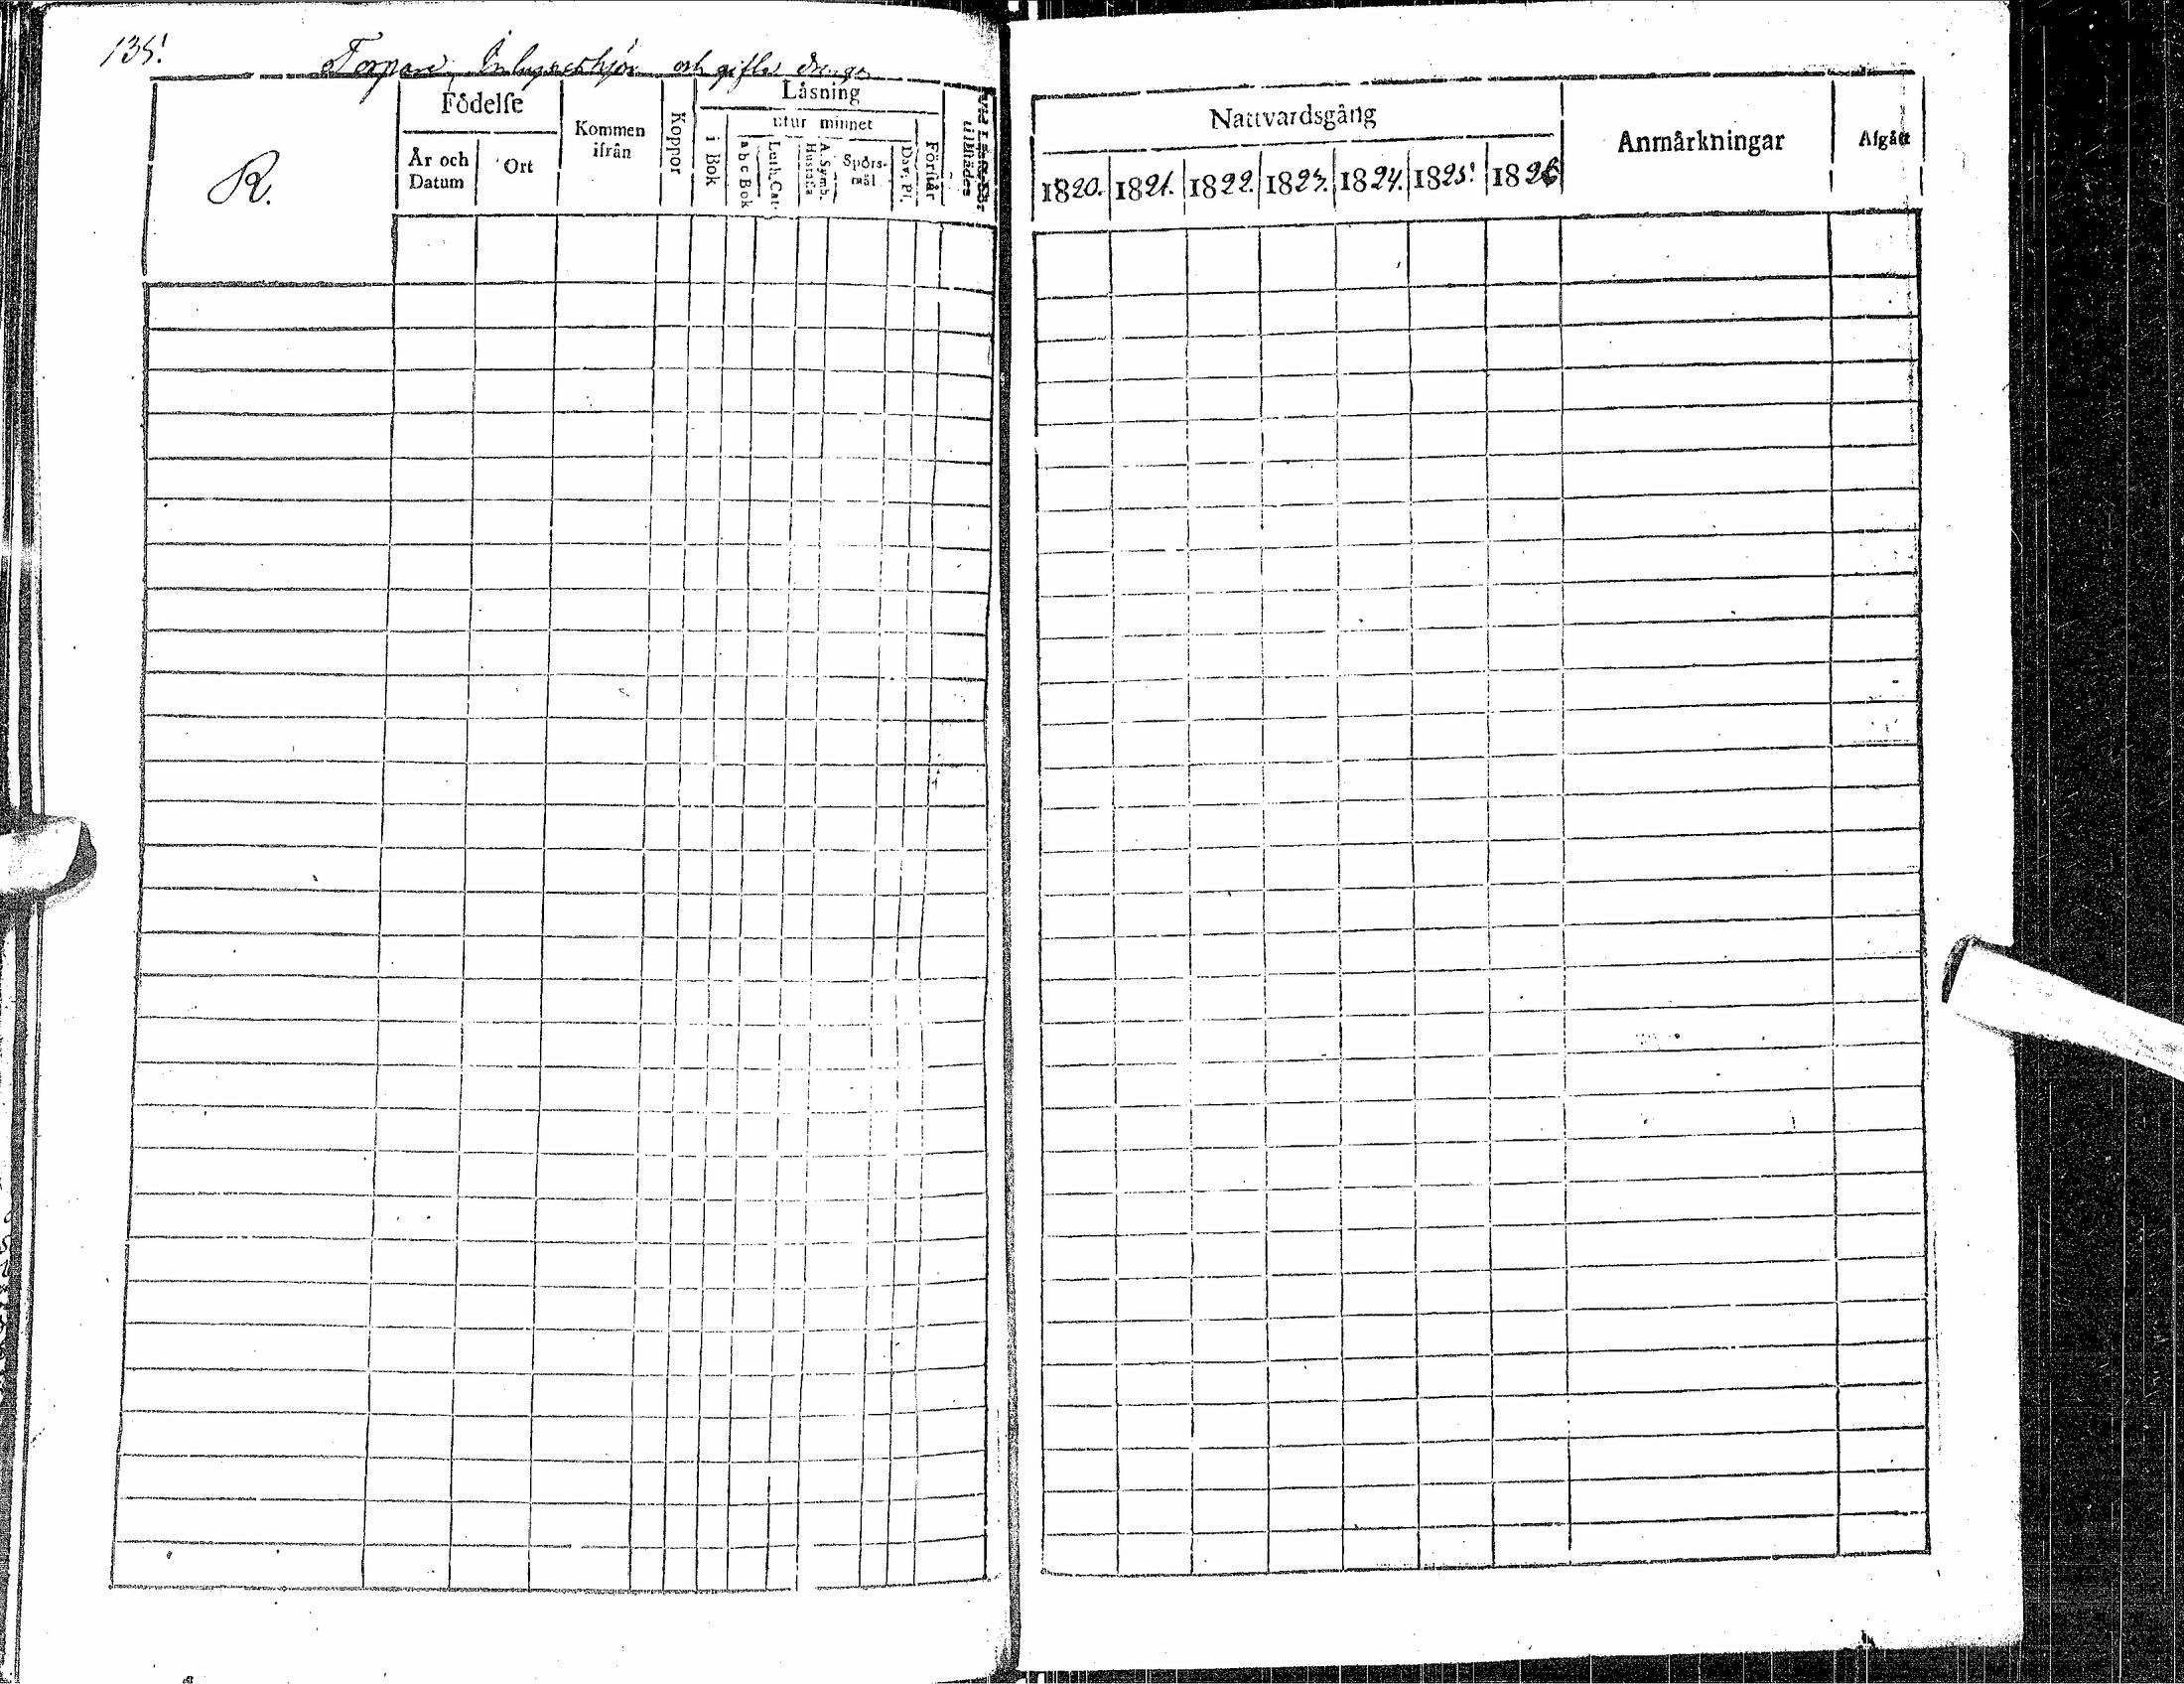 135!
Torpare, Inhyseshjon och gifta drengar
R.
Födelse
År och Datum
Ort
Kommen ifrån
Koppor
Låsning
i Bok
utur minnet
a b c Bok
Luth. Cat.
A. Symb. Hustafla
Spörs-mål
Dav. Pſ.
Förstår
tillstädes
Nattvardsgång
1820. 1821. 1822. 1823. 1824. 1825! 1826
Anmårkningar
Afgått